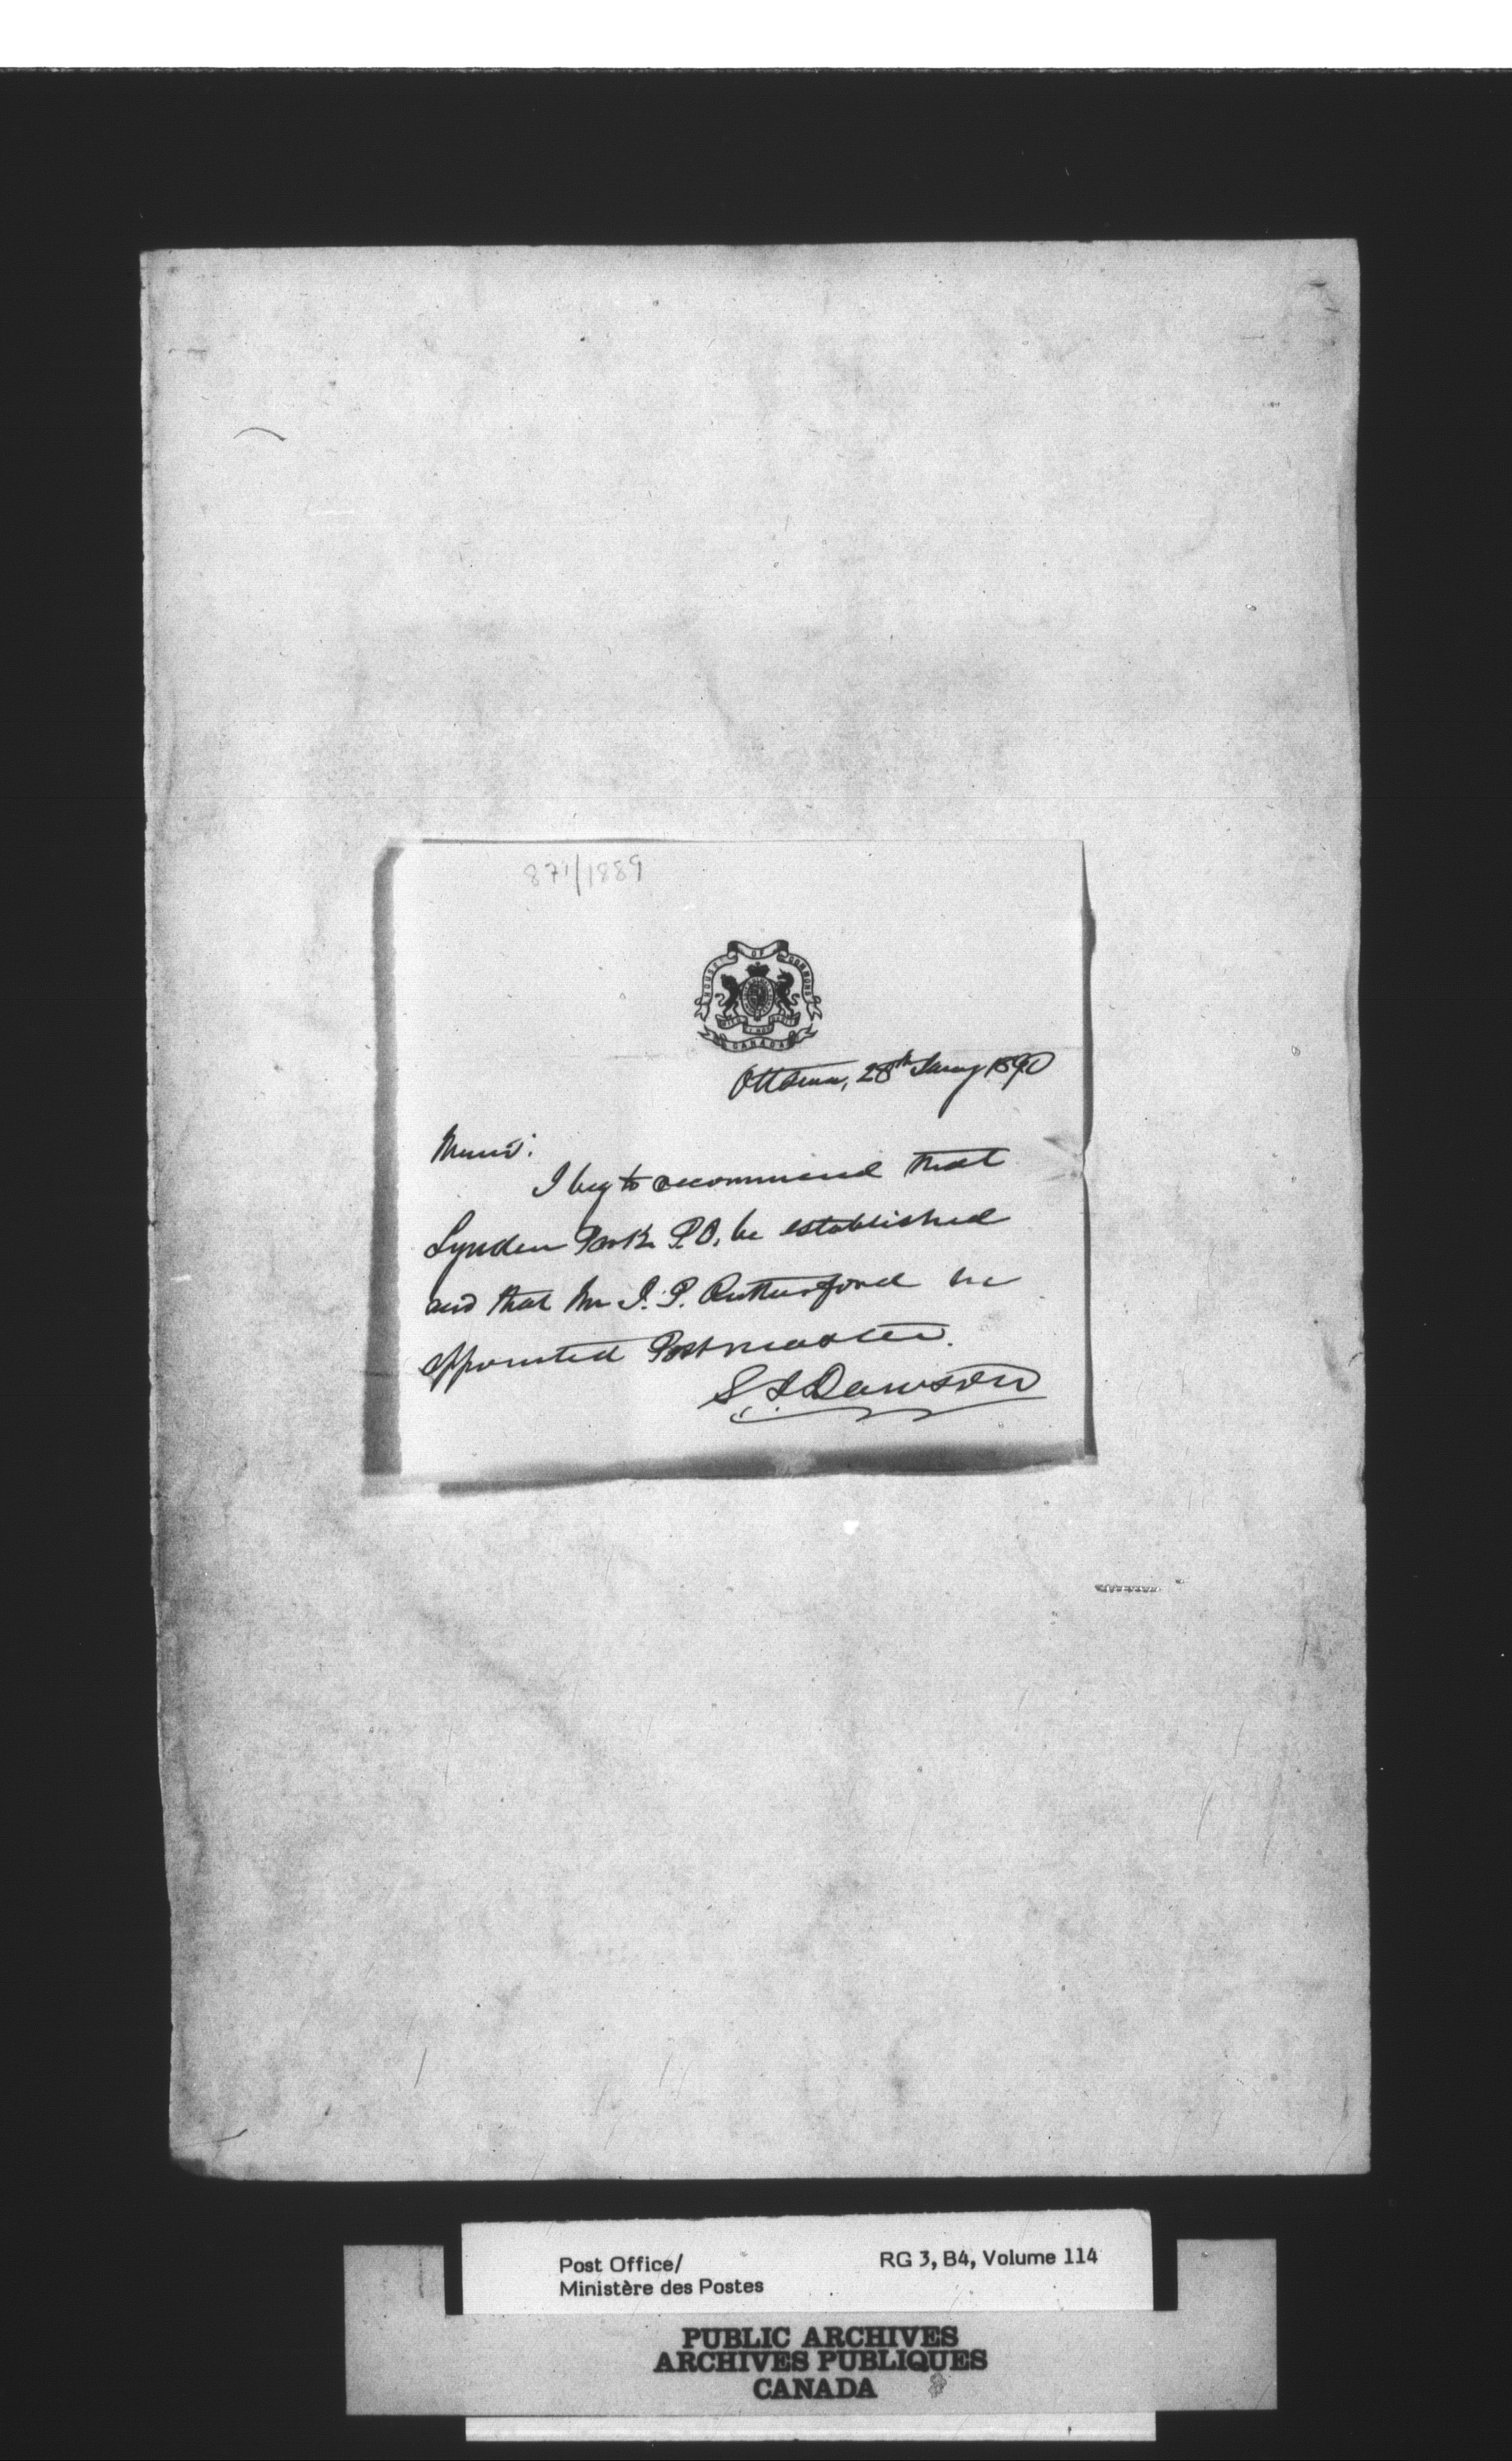 871/1889
HOUSE OF COMMONS
CANADA
Ottawa, 28th Jany 1890
I beg to recommend that
Lynden Park P.O. be established
and that Mr I. P. Rutherford be
appointed Postmaster.
S. J. Dawson
Post Office/ RG 3, B4, Volume 114
Ministère des Postes
PUBLIC ARCHIVES
ARCHIVES PUBLIQUES
CANADA